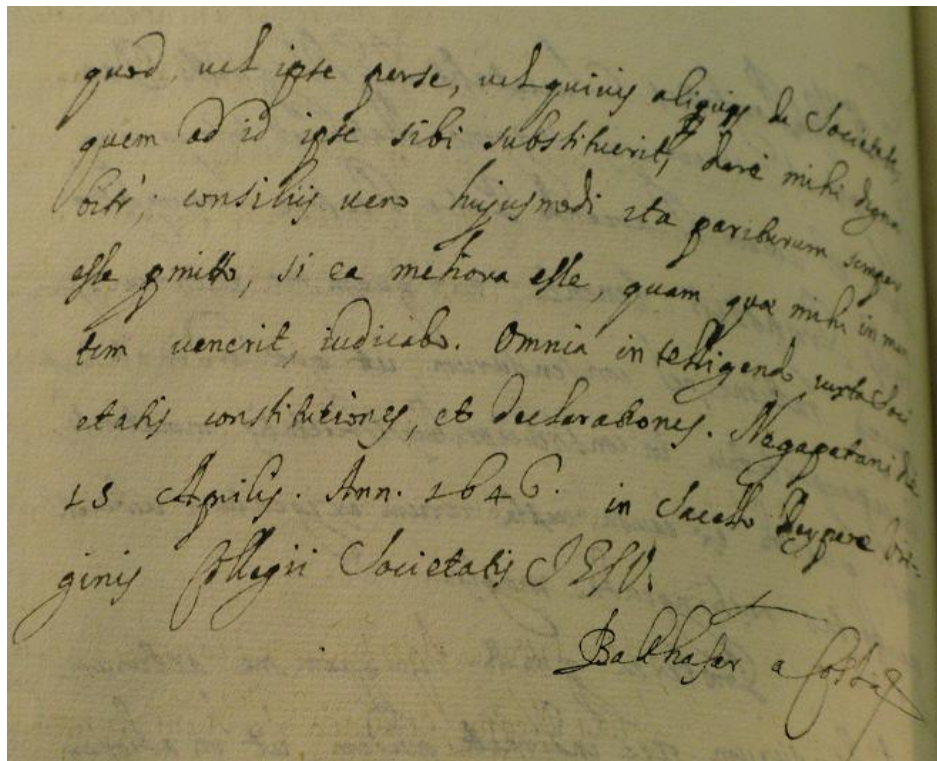 quod, vel ipse per se, vel quivis aliquis de Societate,
quem ad id ipse sibi substituerit, dare mihi digna
bitr; consilijs vero hujusmodi ita pariturum semper
esse pmitto, si ea meliora esse, quam quæ mihi in men
tem venerit iudicabo. Omnia intelligendo iuxta Soci
etatis constitutiones, et declarationes. Negapatani die
15 Aprilis. Ann. 1646. in Sacello Deiparæ Vir-
ginis Collegii Societatis JESU.
Balthasar a Costa